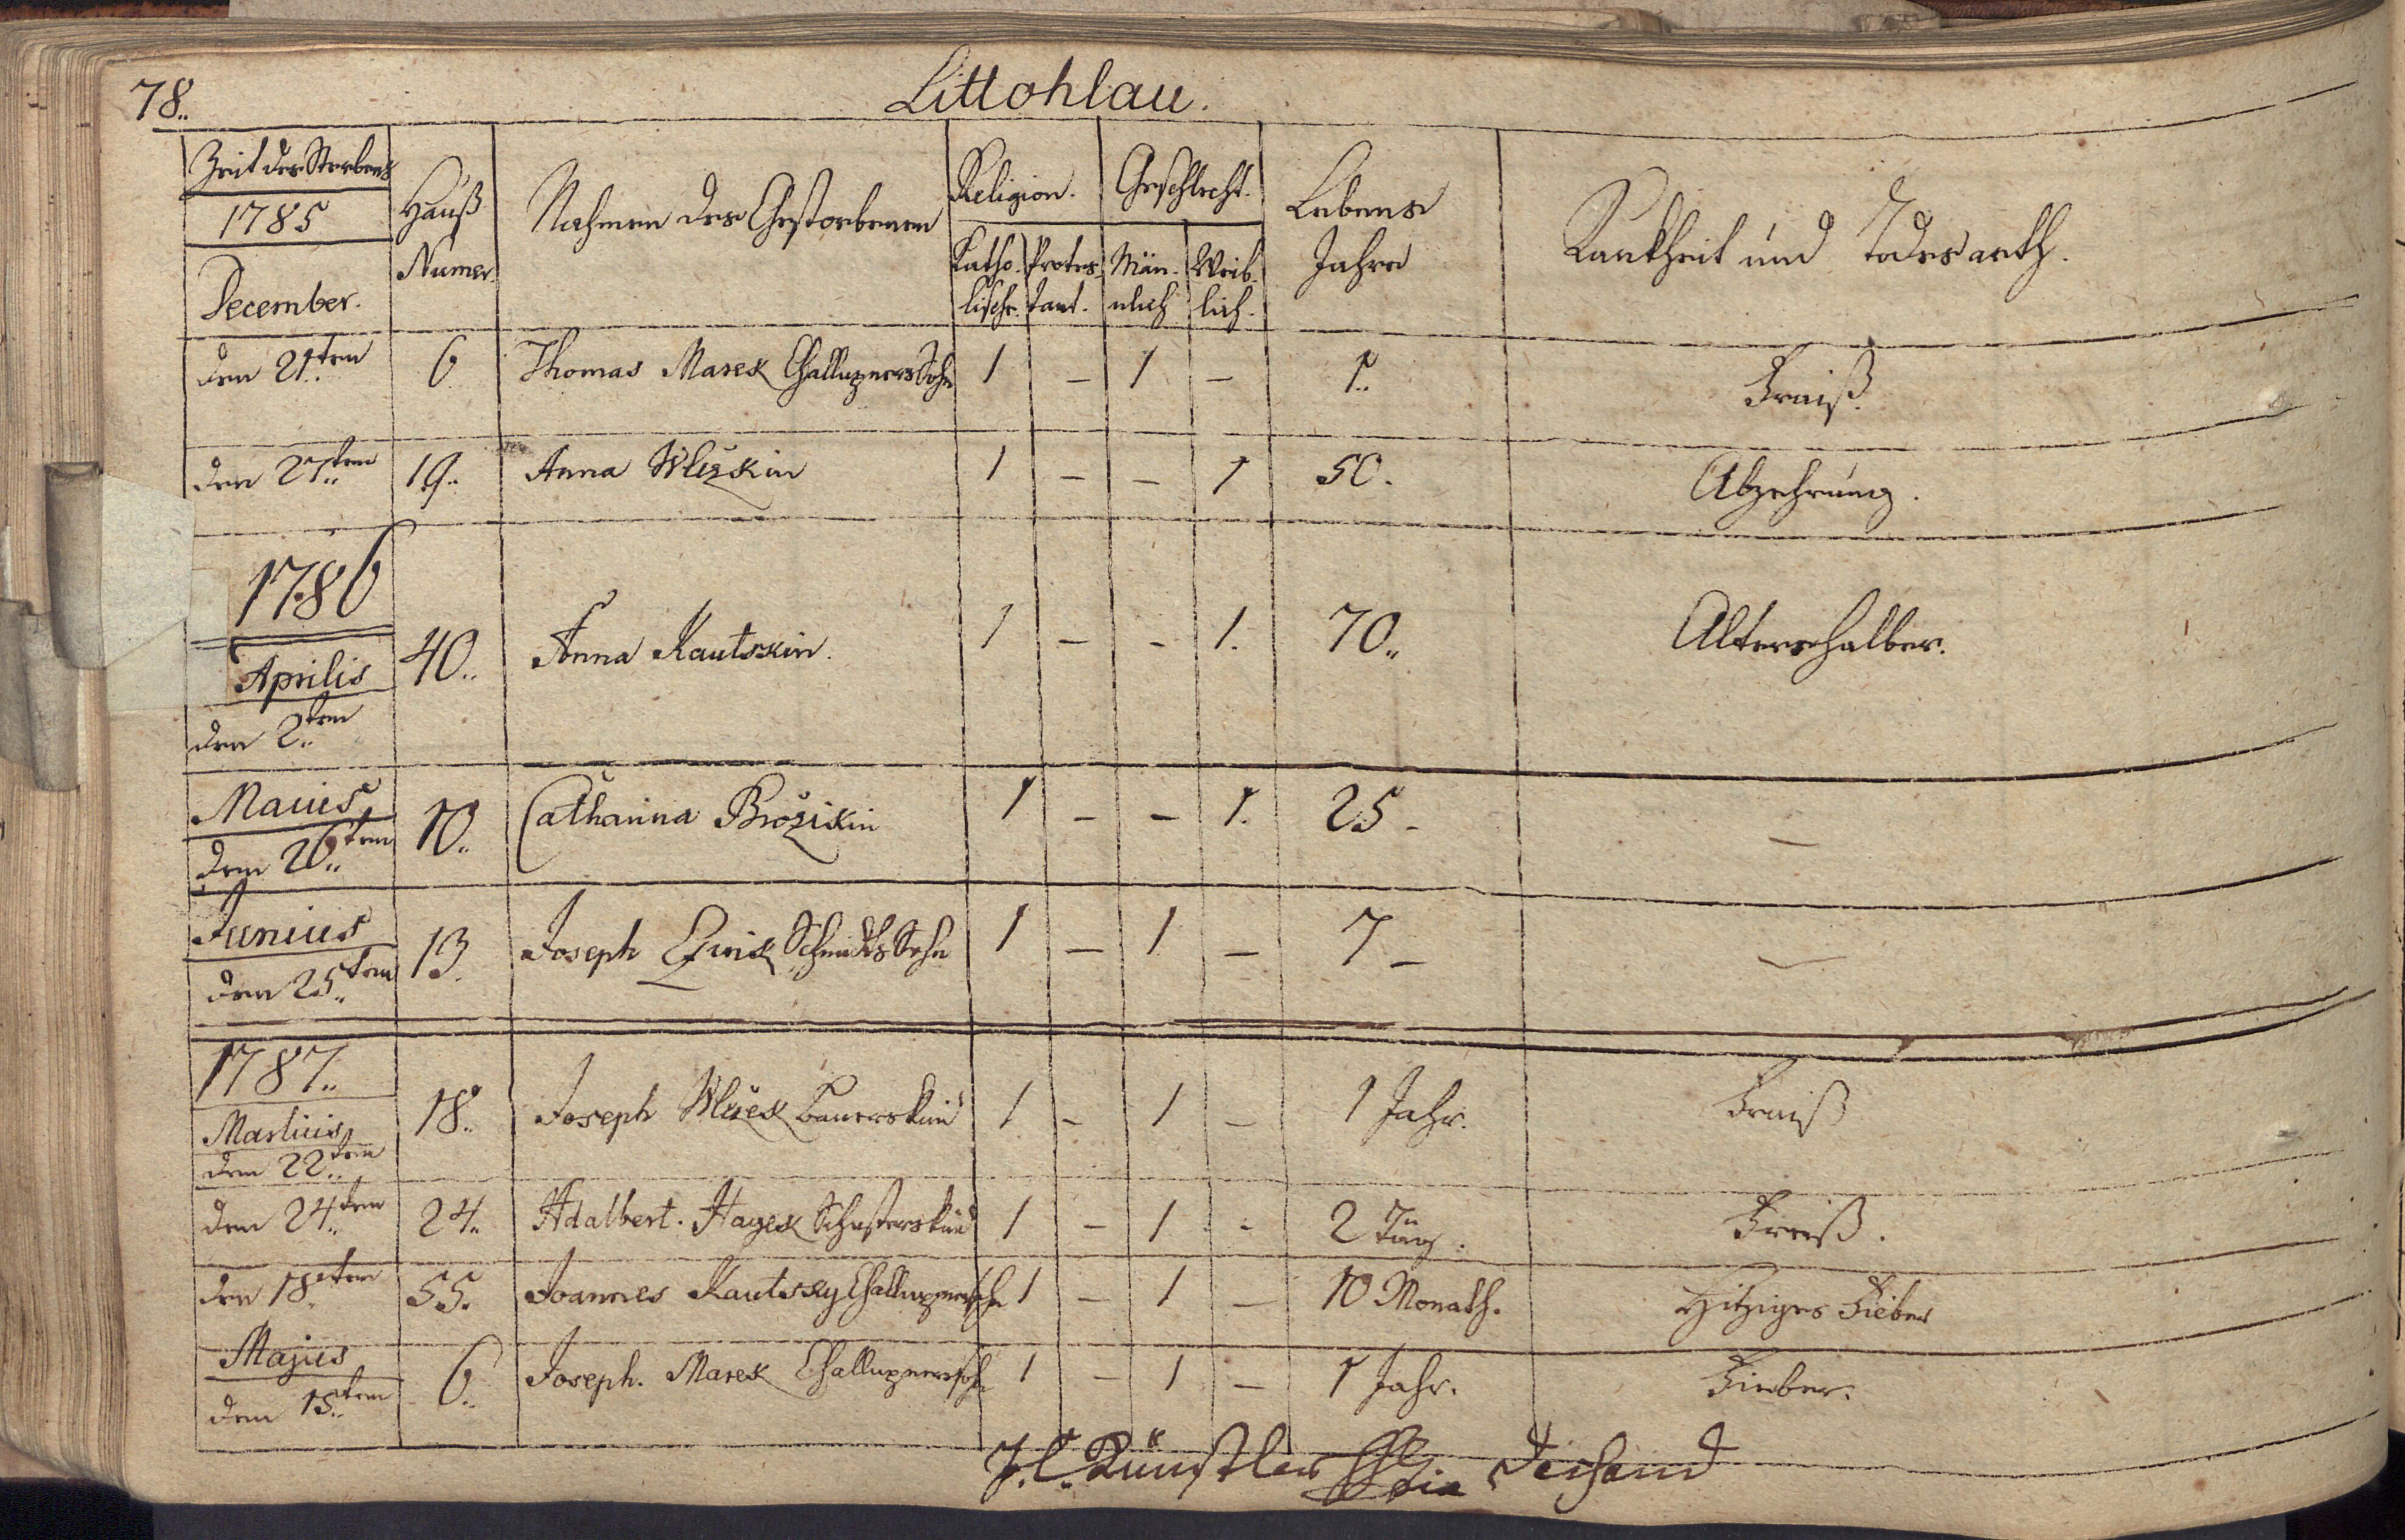 78..
Littohlau.
Zeit des Sterbens
1785
December.
Hauß Numer.
Nahmen des Gestorbenen
Religion.
Katho- lische. Protes- tant.
Geschlecht.
Män- nlich Weib- lich.
Lebens Jahre
Krankheit und Todesarth.
den 21ten 6 Thomas Marek Challupners Sohn 1 – 1 – 1.. Fraiß.
den 27..ten 19.. Anna Wližkin 1 – – 1 50. Abzehrung.
1786
Aprilis
den 2..ten 40.. Anna Kautskin. 1 – – 1. 70.. Altershalber.
Maius
den 26..ten 10.. Catharina Brožikin 1 – – 1. 25 – –
Junius
den 25..ten 13. Joseph Schmidts Sohn 1 – 1 – 7 – –
1787..
Martius
den 22..ten 18.. Joseph Wlžek Bauerskind 1 – 1 – 1 Jahr. Fraiß
den 24..ten 24.. Adalbert. Hayek Schusterskind 1 – 1 – 2 Täg. Freiß.
den 18..ten 55. Joannes Kautsky Challupnersohn 1 – 1 – 10 Monath. Hitziges Fieber
Majus
den 15..ten 6.. Joseph. Marek Challupnerssohn 1 – 1 – 1 Jahr. Fieber.
J. C. Künstler Dechand